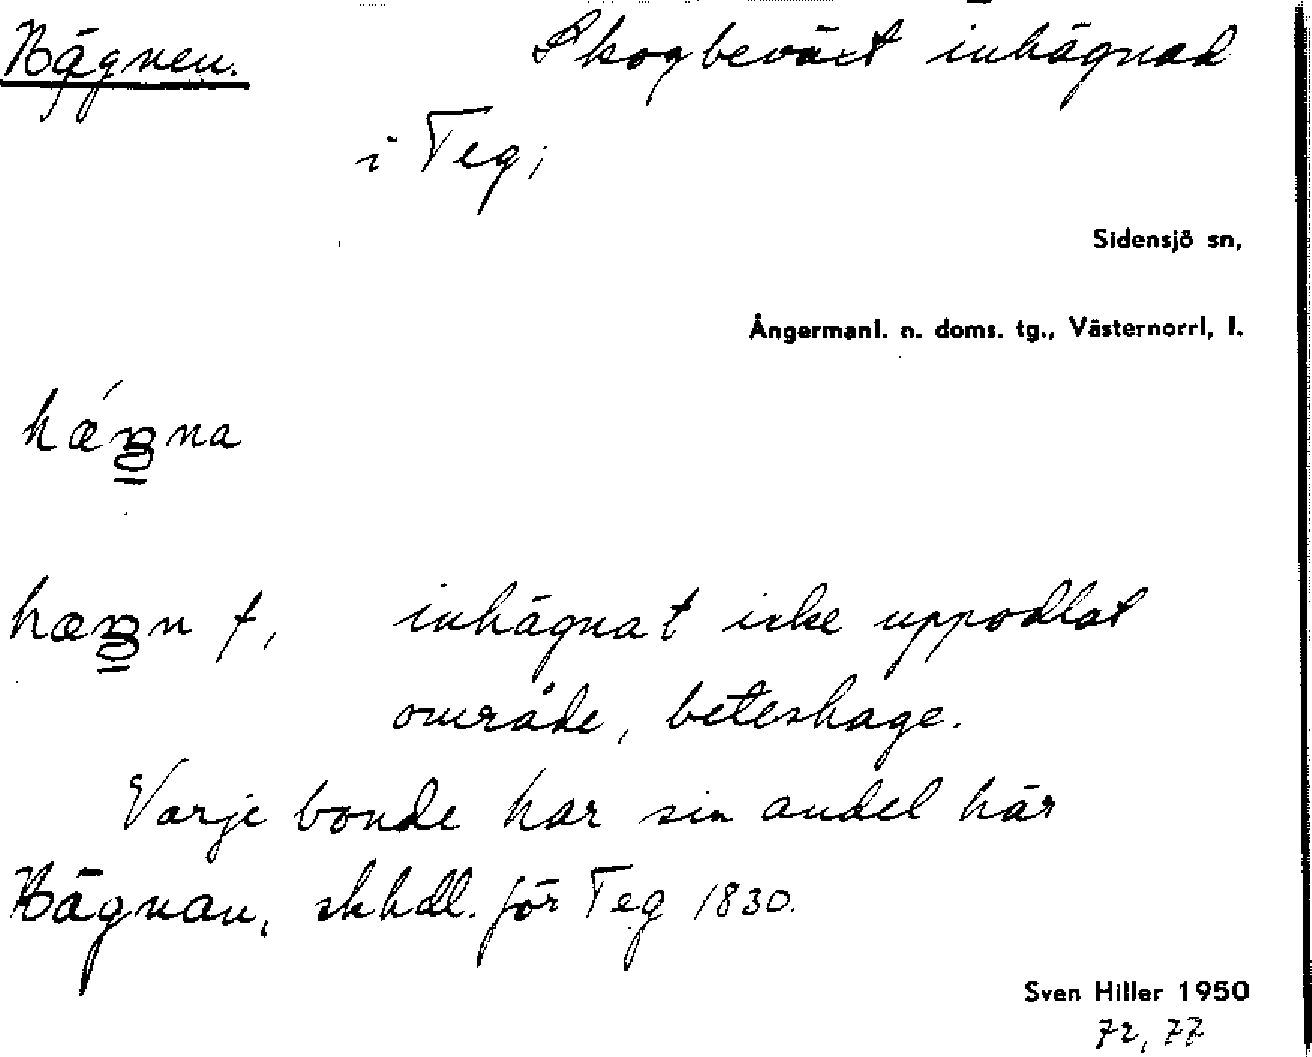 Hägnen. Skogbeväxt inhägnad
i Teg;
Sidensjö sn,
Ångermanl. n. doms. tg., Västernorrl, l.
na
inhägnat icke uppodlat
område, beteshage.
Varje bonde har sin andel här
Hägnan, skhdl. för Teg 1830.
Sven Hiller 1950
72, 77